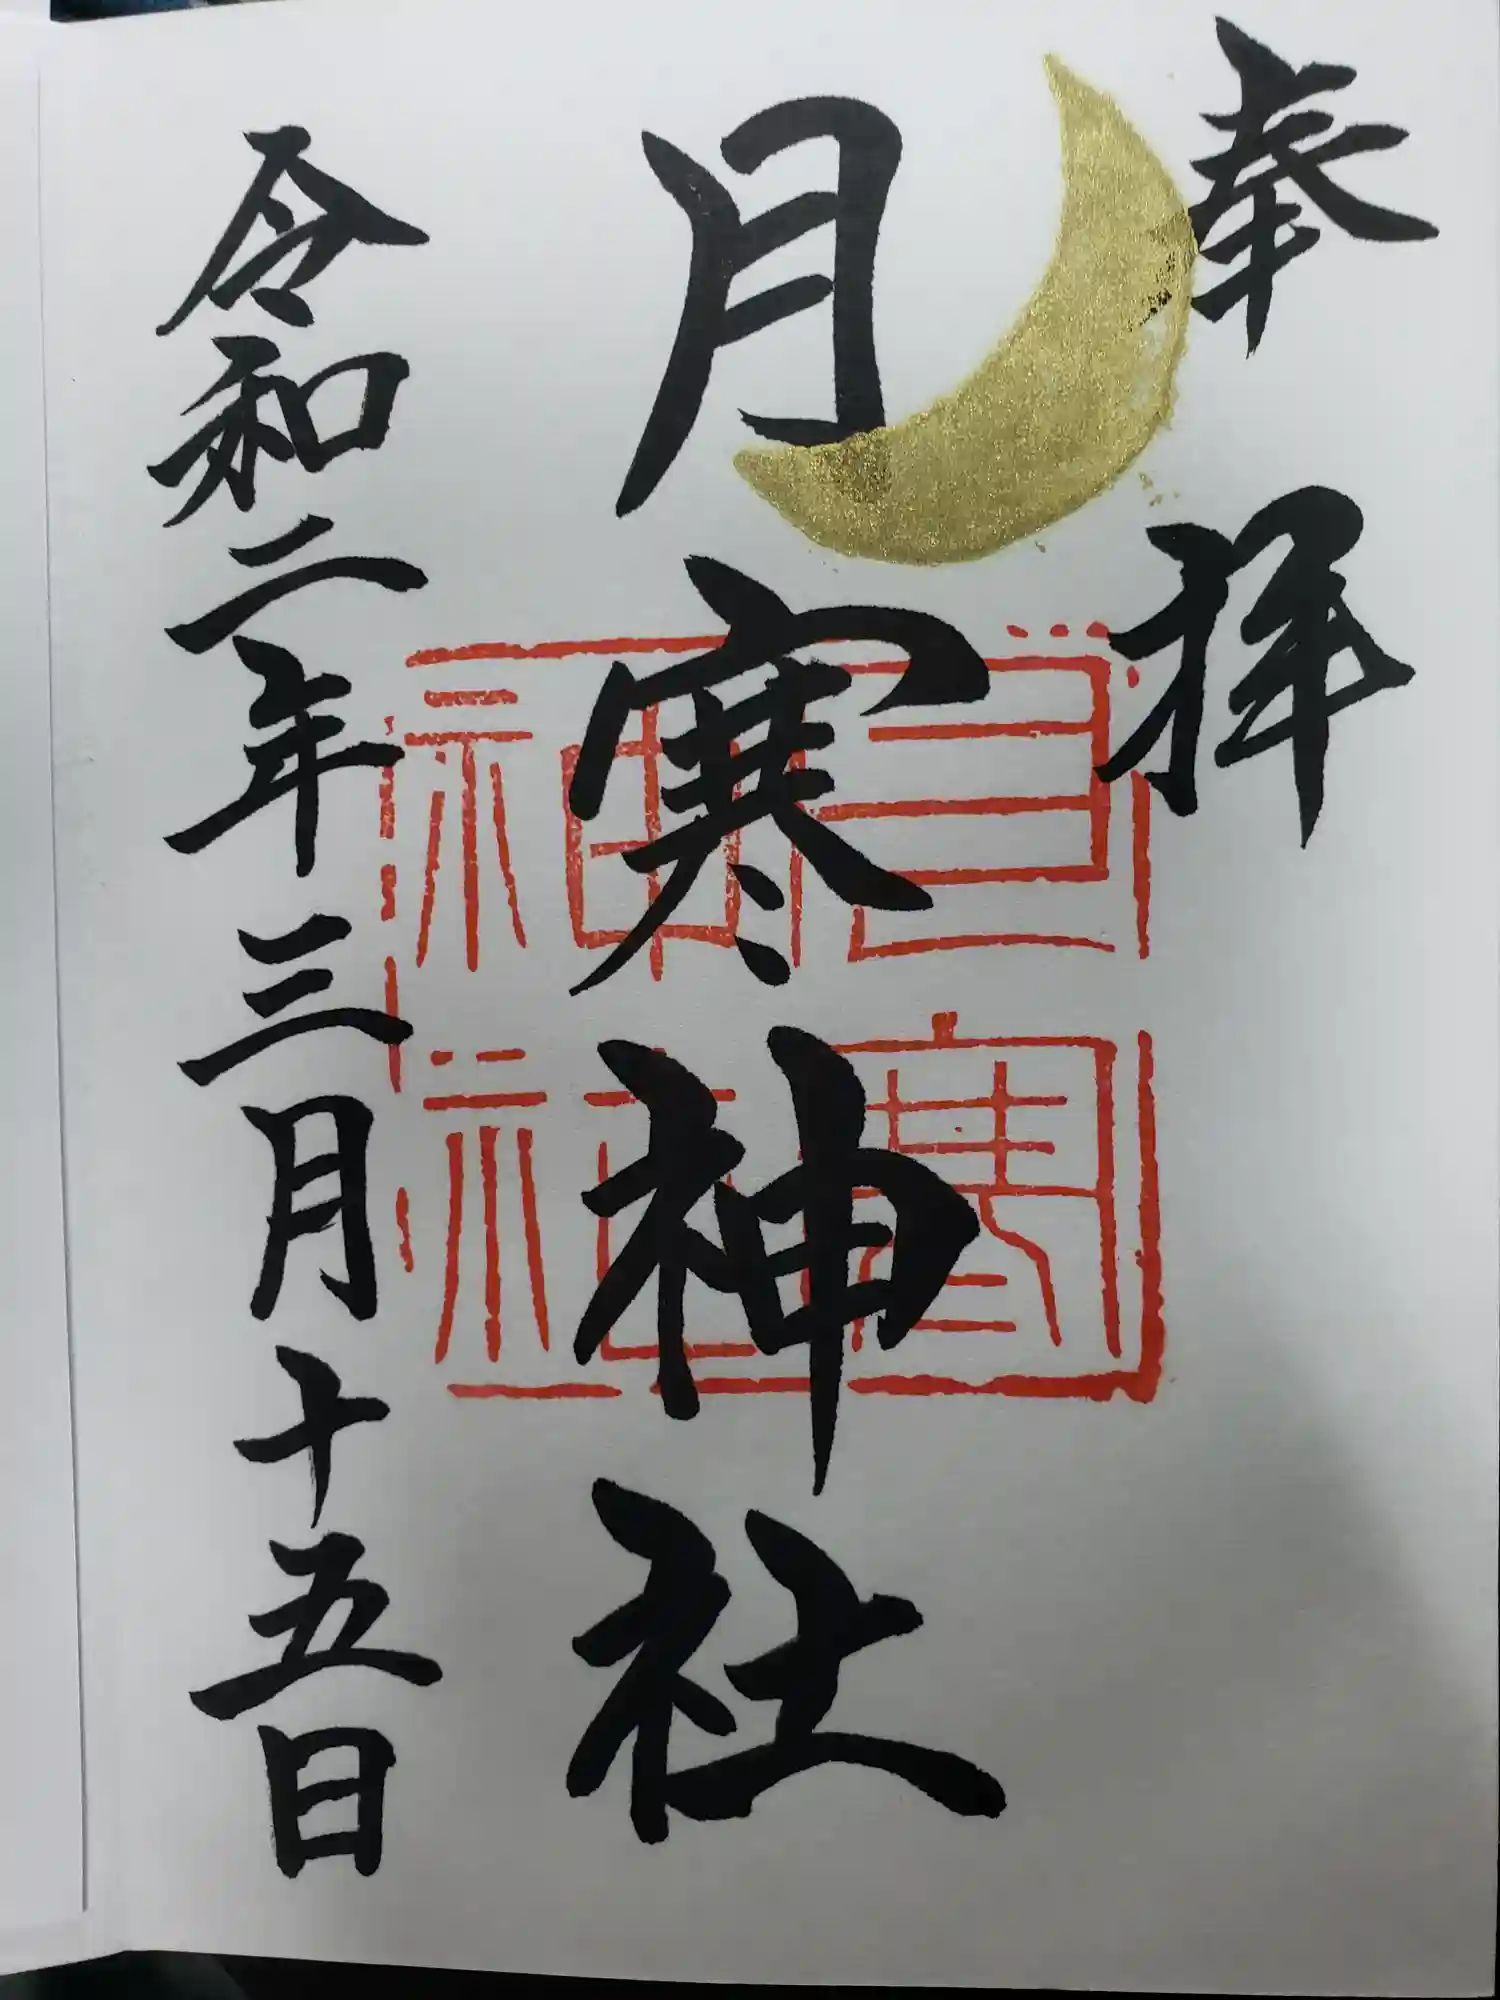 奉拝
月寒神社
月寒神社
令和二年三月十五日